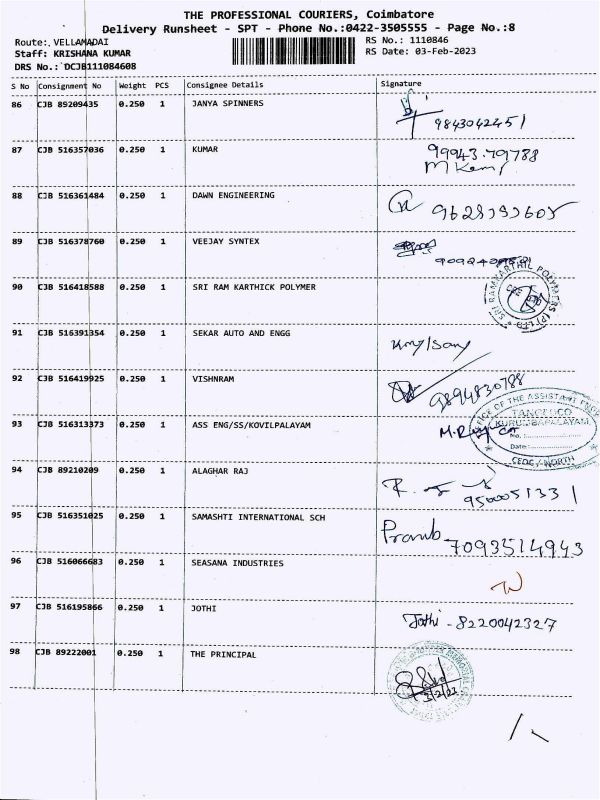 THE PROFESSIONAL COURIERS, Coimbatore
Delivery Runsheet - SPT - Phone No.:0422-3505555 - Page No.:8
Route: VELLAMADAI
RS No.: 1110846
Staff: KRISHANA KUMAR
RS Date: 03-Feb-2023
DRS No.: DCJB111084608
S No Consignment No Weight PCS Consignee Details Signature
86 CJB 89209435 0.250 1 JANYA SPINNERS
9843042451
87 CJB 516357036 0.250 1 KUMAR
99943.79788
88 CJB 516361484 0.250 1 DAWN ENGINEERING
89 CJB 516378760 0.250 1 VEEJAY SYNTEX
90 CJB 516418588 0.250 1 SRI RAM KARTHICK POLYMER
SRI RAMKARTHIL POLYMERS (P) LTD
CBE
91 CJB 516391354 0.250 1 SEKAR AUTO AND ENGG
92 CJB 516419925 0.250 1 VISHNRAM
9894830788
93 CJB 516313373 0.250 1 ASS ENG/SS/KOVILPALAYAM
OFFICE OF THE ASSISTANT
TANGEDCO
KURUMBAPALAYAM
No.:
Date:
CEDC/NORTH
94 CJB 89210209 0.250 1 ALAGHAR RAJ
9500051331
95 CJB 516351025 0.250 1 SAMASHTI INTERNATIONAL SCH
7093514943
96 CJB 516066683 0.250 1 SEASANA INDUSTRIES
97 CJB 516195866 0.250 1 JOTHI
Jothi - 8220042327
98 CJB 89222001 0.250 1 THE PRINCIPAL